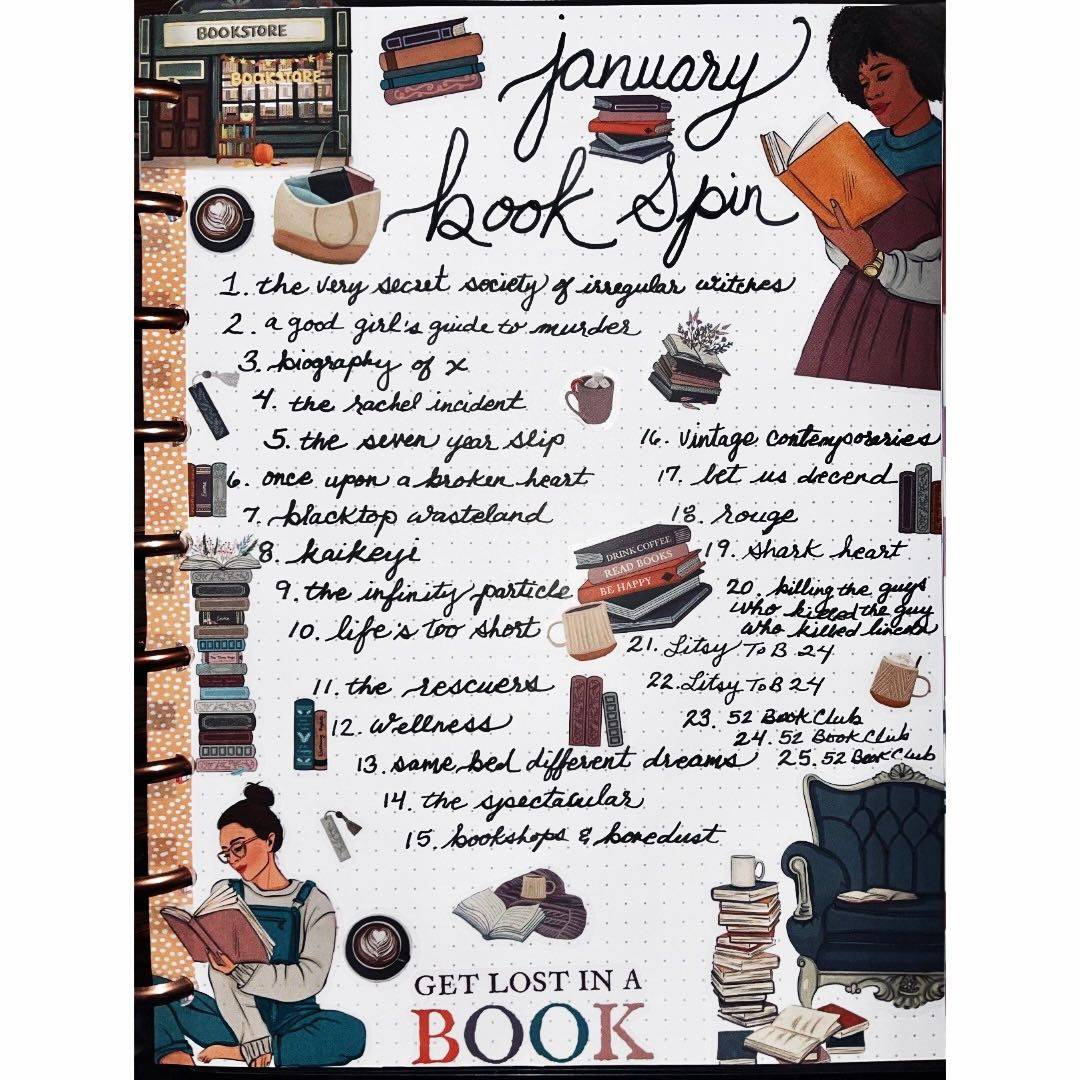 BOOKSTORE
BOOKSTORE
january
book spin
1. the very secret society of irregular witches
2. a good girl's guide to murder
3. biography of x
4. the rachel incident
5. the seven year slip
6. once upon a broken heart
7. blacktop wasteland
8. kaikeyi
9. the infinity particle
10. life's too short
11. the rescuers
12. wellness
13. same bed different dreams
14. the spectacular
15. bookshops & bonedust
16. vintage contemporaries
17. let us decend
18. rouge
19. shark heart
20. killing the guys
who killed the guy
who killed lincoln
21. Litsy ToB 24
22. Litsy ToB 24
23. 52 Book Club
24. 52 Book Club
25. 52 Book Club
DRINK COFFEE
READ BOOKS
BE HAPPY
GET LOST IN A
BOOK